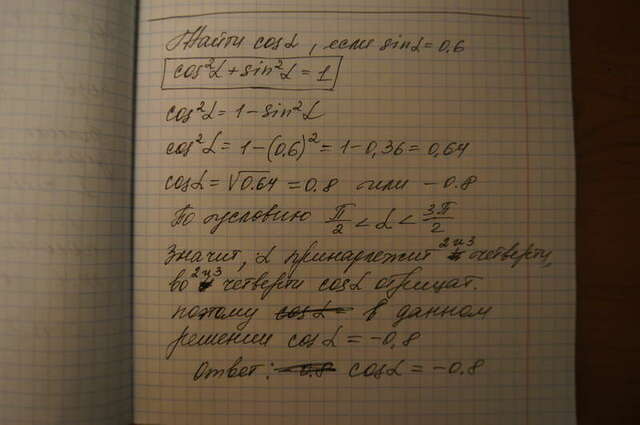 Найти cosα, если sinα=0,6
cos²α+sin²α=1
cos²α=1-sin²α
cos²α=1-(0,6)²=1-0,36=0,64
cosα=√0.64=0.8 или -0.8
По условию π/2<α<3π/2
Значит, α принадлежит 2 и 3 четверти,
во 2 и 3 четверти cosα отрицат.
поэтому cosα= в данном
решении cosα=-0,8
Ответ: -0.8 cosα=-0.8